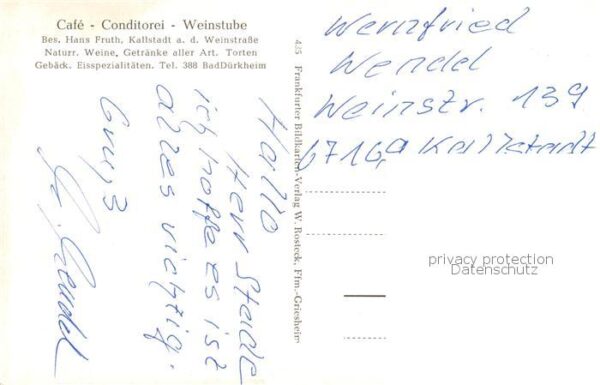 Café - Conditorei - Weinstube
Bes. Hans Fruth, Kallstadt a. d. Weinstraße
Naturr. Weine, Getränke aller Art. Torten
Gebäck. Eisspezialitäten. Tel. 388 BadDürkheim
Hallo
Herr Stade
ich hoffe es ist
alles richtig.
Gruß
W. Wendel
425 Frankfurter Bildkarten-Verlag W. Rosteck, Ffm.-Griesheim
Wernfried
Wendel
Weinstr. 139
6716,9 Kallstadt
privacy protection
Datenschutz